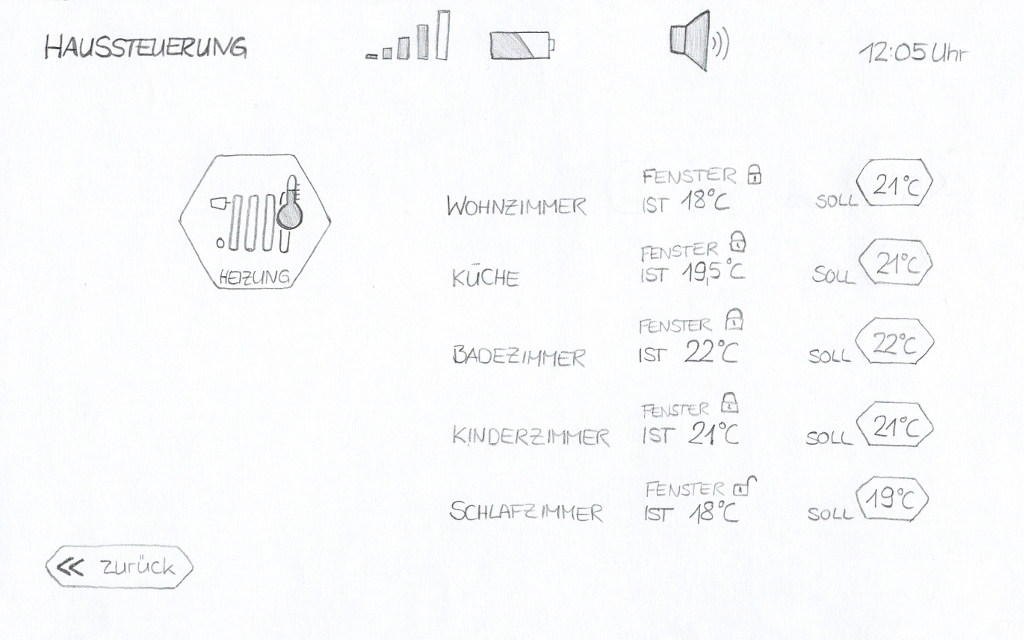 HAUSSTEUERUNG
12:05 Uhr
HEIZUNG
WOHNZIMMER
FENSTER
IST 18°C
SOLL 21°C
KÜCHE
FENSTER
IST 19,5°C
SOLL 21°C
BADEZIMMER
FENSTER
IST 22°C
SOLL 22°C
KINDERZIMMER
FENSTER
IST 21°C
SOLL 21°C
SCHLAFZIMMER
FENSTER
IST 18°C
SOLL 19°C
« zurück